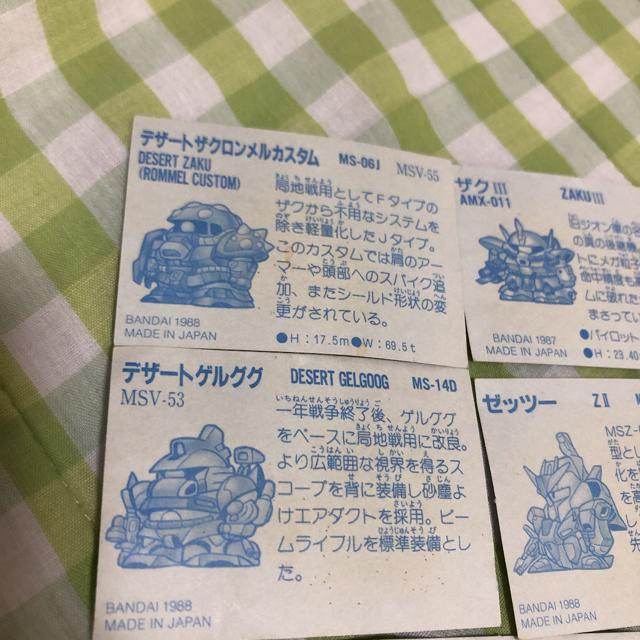 デザートザクロンメルカスタム MS-06J MSV-55
DESERT ZAKU
(ROMMEL CUSTOM)
局地戦用としてFタイプの
ザクから不用なシステムを
除き軽量化したJタイプ。
このカスタムでは肩のア
ーマーや頭部へのスパイク追
加、またシールド形状の変
更がされている。
●H:17.5m●W:69.5t
BANDAI 1988
MADE IN JAPAN
ザクIII ZAKUIII
AMX-011
BANDAI 1987
MADE IN JAPAN
●パイロット
デザートゲルググ DESERT GELGOOG MS-14D
MSV-53
一年戦争終了後、ゲルググ
をベースに局地戦用に改良。
より広範囲な視界を得るス
コープを背に装備し砂塵よ
けエアダクトを採用。ビー
ムライフルを標準装備とし
た。
BANDAI 1988
MADE IN JAPAN
ゼッツー ZII
BANDAI 1988
MADE IN JAPAN